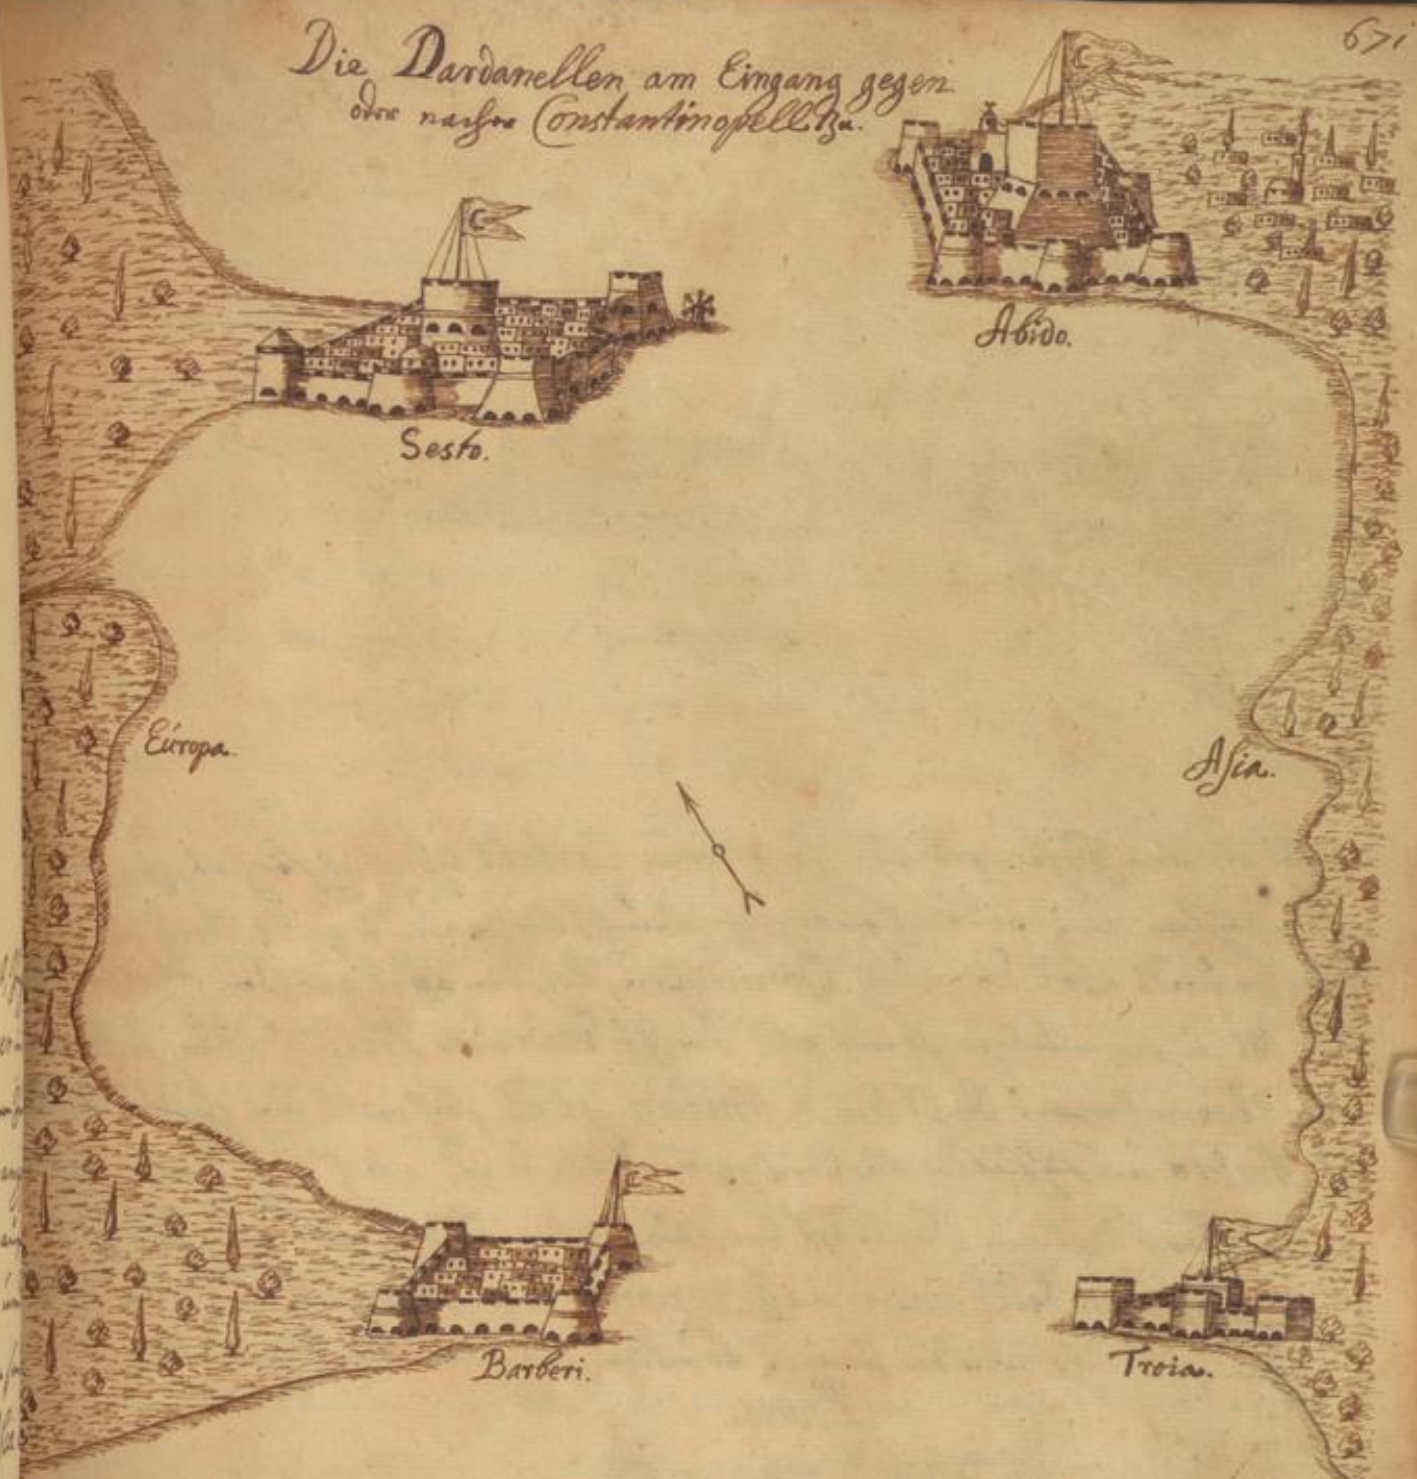 671
Die Dardanellen am Eingang gegen
oder nacher Constantinopell zu.
Abido.
Sesto.
Európa.
Asia.
Barberi.
Troia.